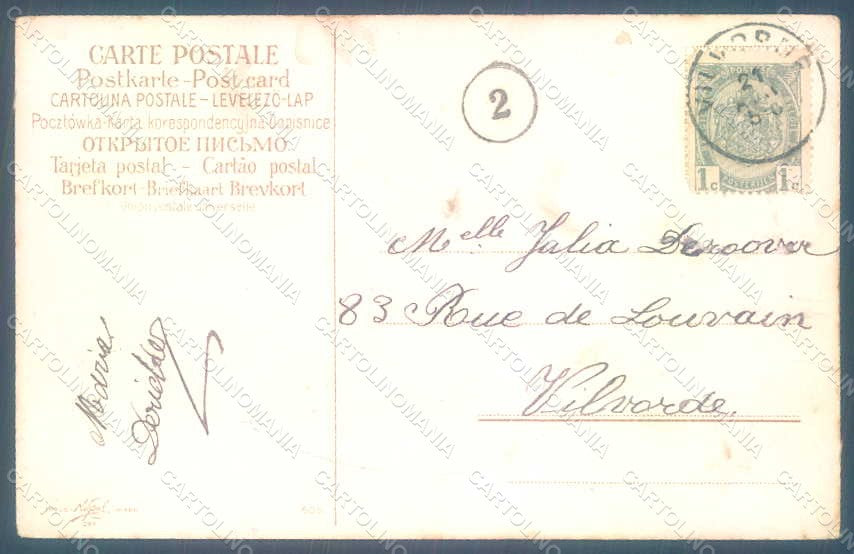 CARTE POSTALE
Postkarte - Post card
CARTOLINA POSTALE - LEVELEZŐ-LAP
Pocztówka-Karta korespondencyjna-Dopisnice
ОТКРЫТОЕ ПИСЬМО
Tarjeta postal - Cartão postal
Brefkort-Briefkaart Brevkort
Union postale universelle
2
VILVORDE
1c 1c
Melle Julia Deroover
83 Rue de Louvain
Vilvorde
Maria
CARTOLINOMANIA